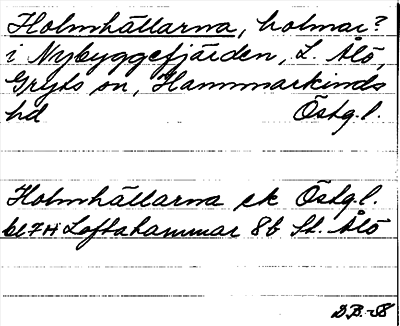 Holmhällarna, holmar?
i Nybyggefjärden, L. Ålö,
Gryts sn, Hammarkinds
hd Östg.l.
Holmhällarna ek Östg.l.
bl 7 H Loftahammar 8b St. Ålö
D.B.-58